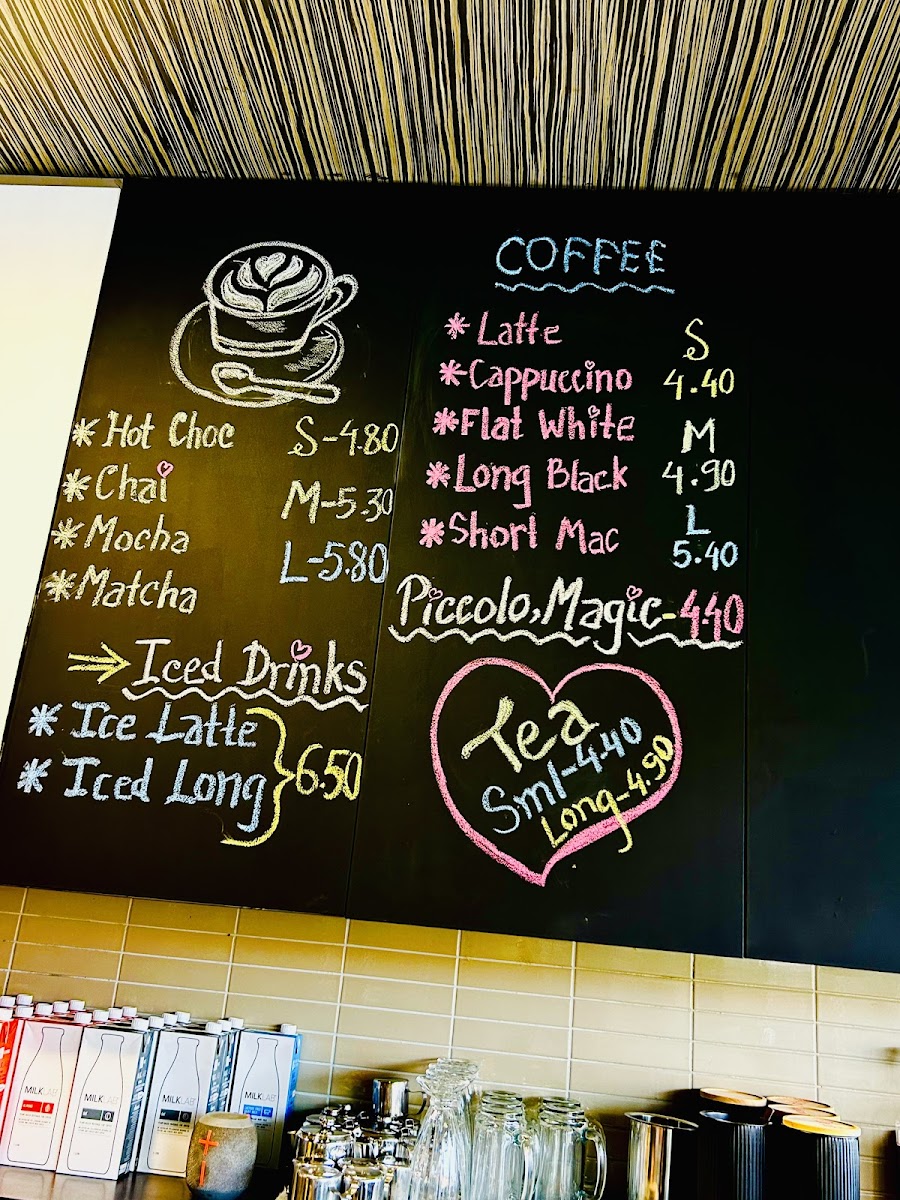 * Hot Choc S-4.80
* Chai M-5.30
* Mocha L-5.80
* Matcha
Iced Drinks
* Ice Latte
* Iced Long 6.50
COFFEE
* Latte S
* Cappuccino 4.40
* Flat White M
* Long Black 4.90
* Short Mac L
5.40
Piccolo, Magic-4.40
Tea
Sml-4.40
Long-4.90
MILKLAB
MILKLAB
MILKLAB
MILKLAB